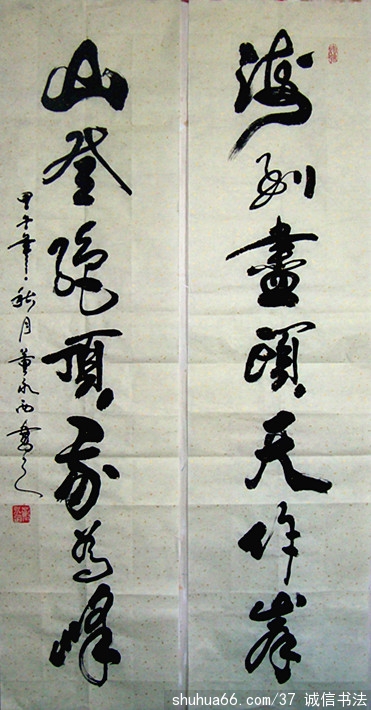 海到盡頭天作岸
山登絕頂我為峰
甲午年秋月董永西
shuhua66.com/37 诚信书法